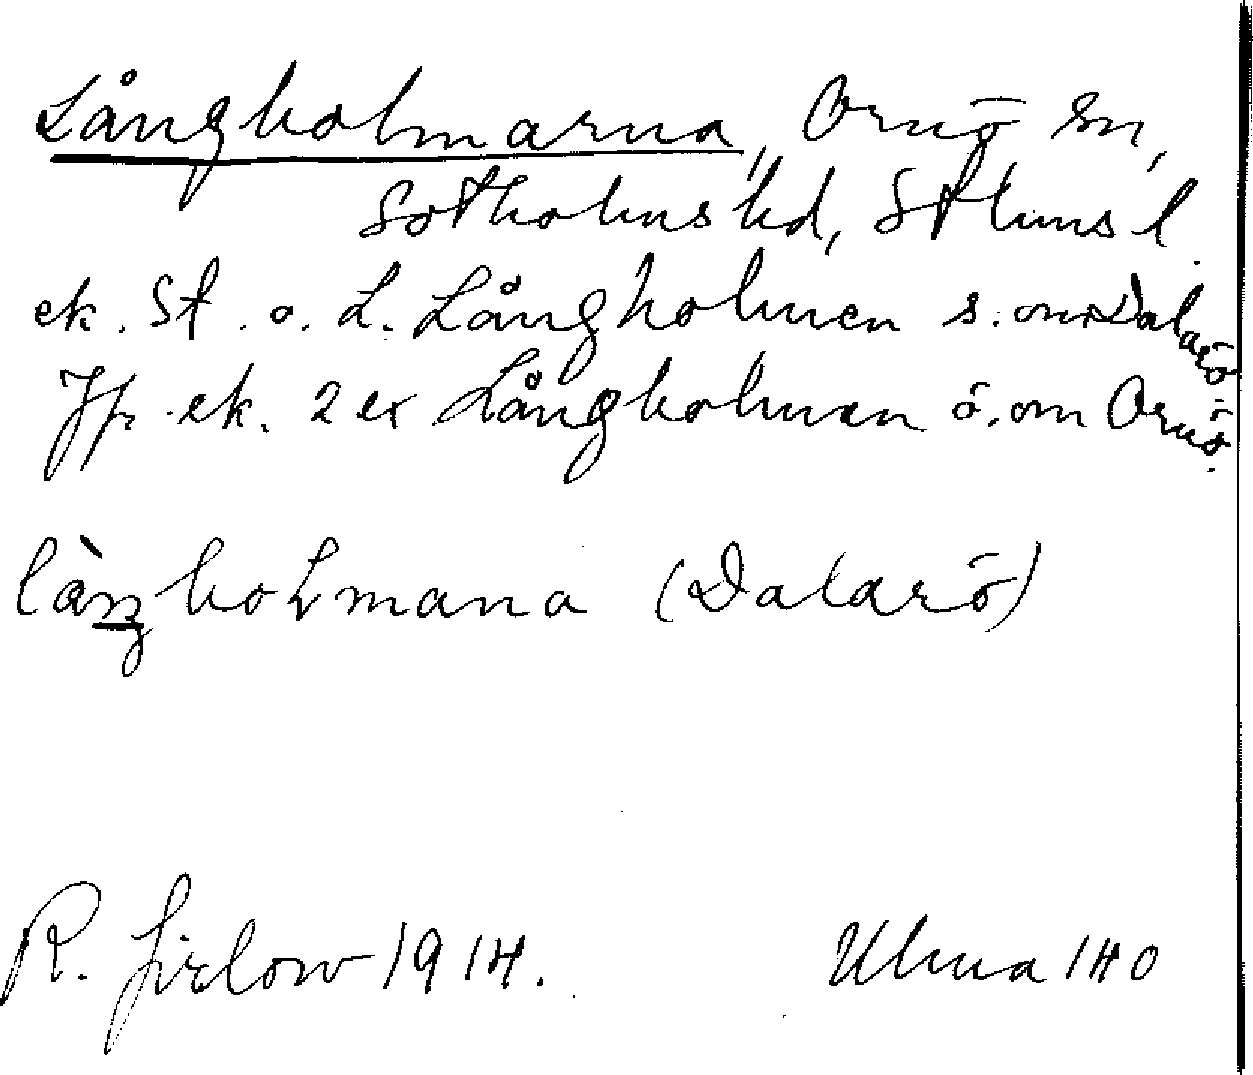 Långholmarna, Ornö sn,
Sotholms hd, Sthlms l.
ek. St. o. L. Långholmen s. om Dalarö
Jfr ek. 2 ex Långholmen ö. om Ornö.
(Dalarö)
R. Jirlow 1914. Ulma 140